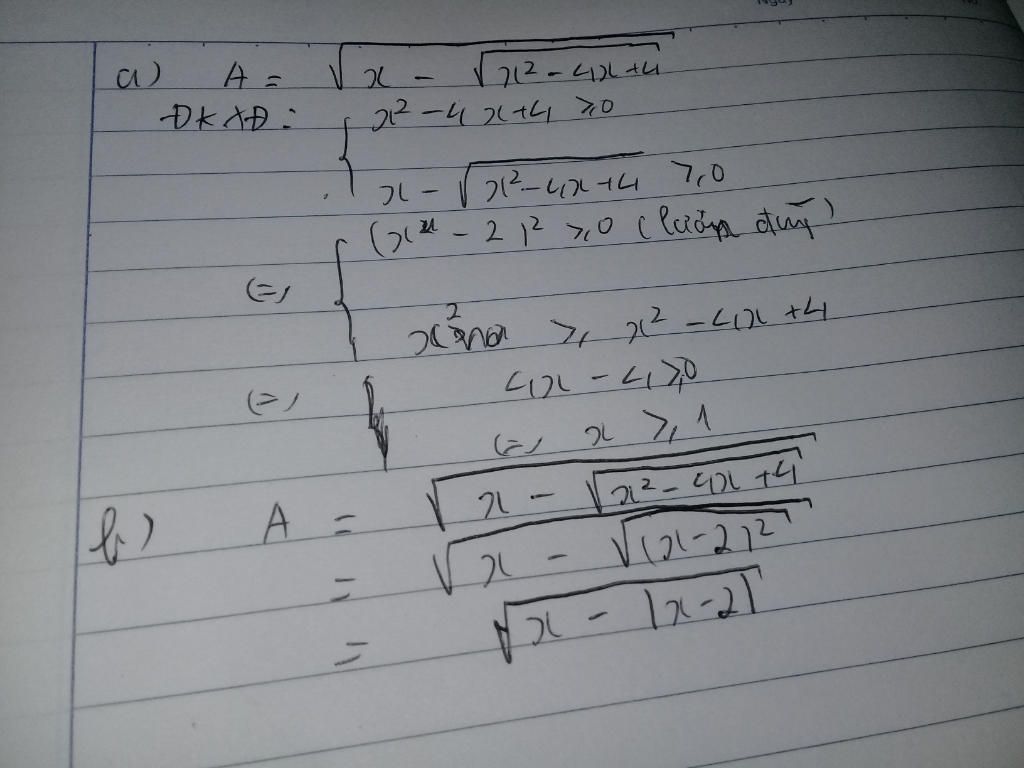 a) A = √(x - √(x² - 4x + 4))
ĐKXĐ: { x² - 4x + 4 ≥ 0
x - √(x² - 4x + 4) ≥ 0
(=) { (x - 2)² ≥ 0 (luôn đúng)
x² ≥ x² - 4x + 4
(=) 4x - 4 ≥ 0
(=) x ≥ 1
b) A = √(x - √(x² - 4x + 4))
= √(x - √((x - 2)²))
= √(x - |x - 2|)